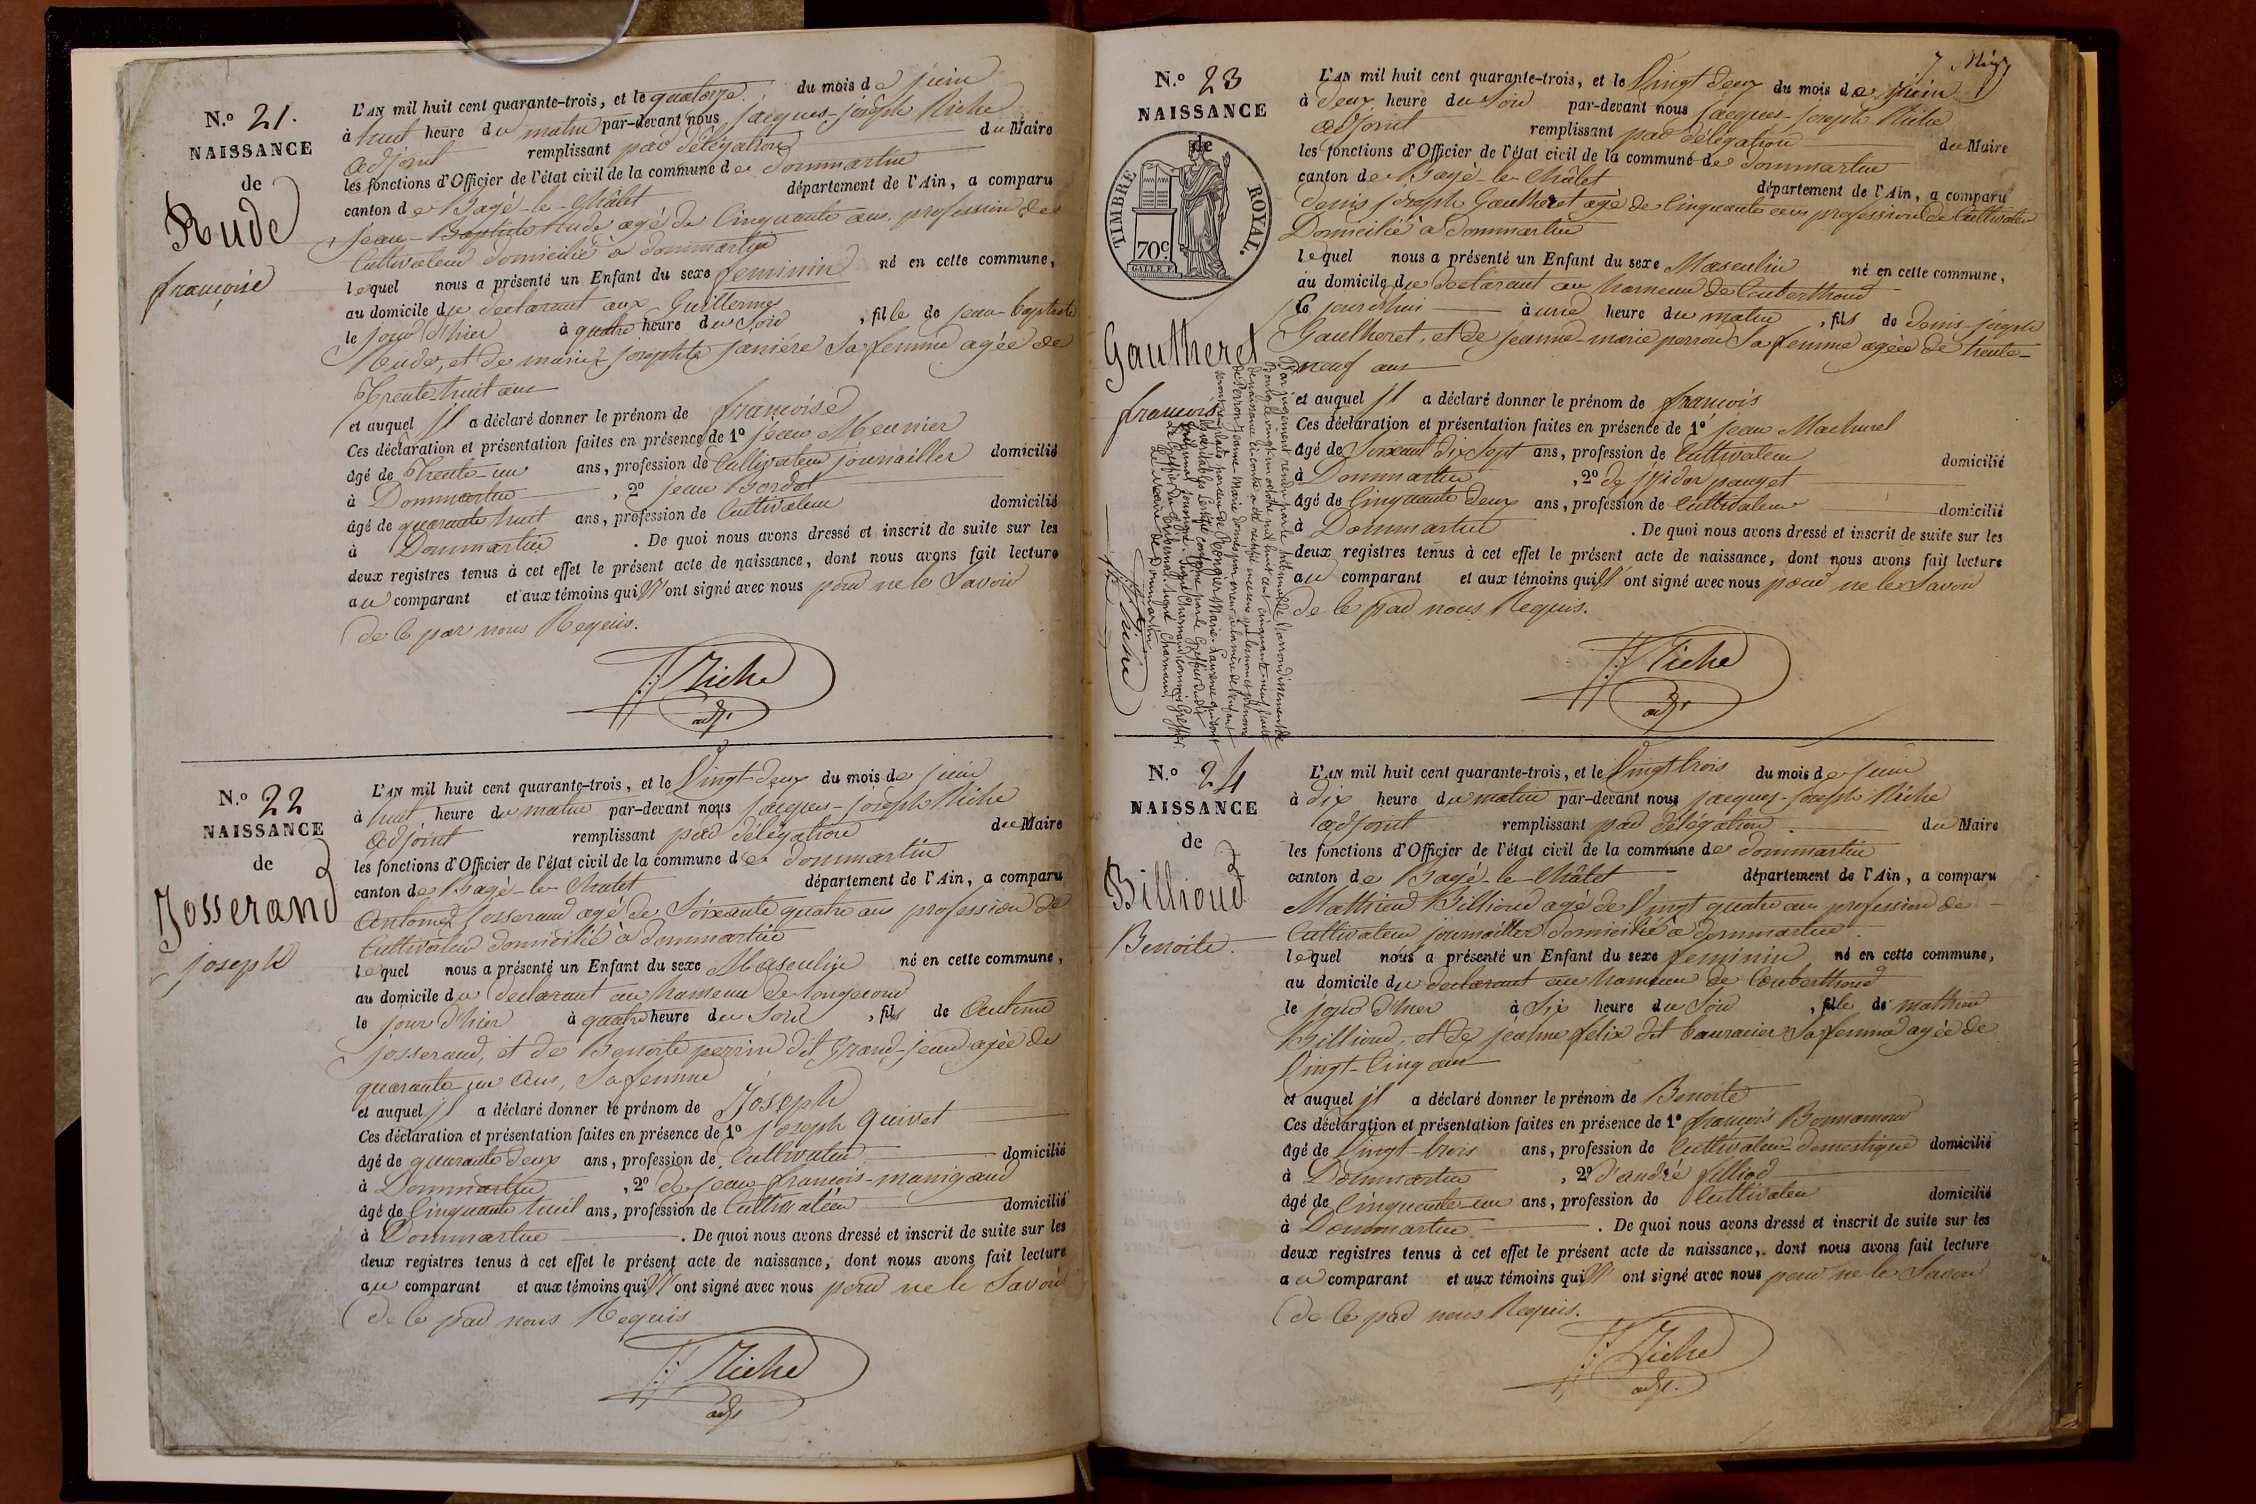 N.º 21.
NAISSANCE
de
Rude
françoise
L'AN mil huit cent quarante-trois, et le quatorze du mois de juin
à huit heure du matin par-devant nous jacques-joseph Riche
adjoint remplissant par délégation du Maire
les fonctions d'Officier de l'état civil de la commune de dommartin
canton de Bagé-le-Châtel département de l'Ain, a comparu
jean-Baptiste Rude agé de Cinquante ans profession de
Cultivateur domicilié à dommartin
lequel nous a présenté un Enfant du sexe feminin né en cette commune,
au domicile du declarant aux Guillermes
le jour d'hier à quatre heure du Soir, fille de jean-baptiste
Rude, et de marie-josephte janiere Sa femme agée de
Trente huit ans
et auquel jl a déclaré donner le prénom de françoise
Ces déclaration et présentation faites en présence de 1º jean Meunier
âgé de Trente-un ans, profession de Cultivateur journailler domicilié
à Dommartin, 2º jean Bordat
âgé de quarante huit ans, profession de Cultivateur domicilié
à Dommartin. De quoi nous avons dressé et inscrit de suite sur les
deux registres tenus à cet effet le présent acte de naissance, dont nous avons fait lecture
au comparant et aux témoins qui N'ont signé avec nous pour ne le Savoir
de ce par nous Requis.
Riche
adj.
N.º 22
NAISSANCE
de
Josserand
joseph
L'AN mil huit cent quarante-trois, et le Vingt-deux du mois de juin
à huit heure du matin par-devant nous jacques-joseph Riche
adjoint remplissant par délégation du Maire
les fonctions d'Officier de l'état civil de la commune de dommartin
canton de Bagé-le-Chatel département de l'Ain, a comparu
Antoine josserand agé de Soixante quatre ans profession de
Cultivateur domicilié à dommartin
lequel nous a présenté un Enfant du sexe Masculin né en cette commune,
au domicile du declarant au hameau de longecour
le jour d'hier à quatre heure du Soir, fils de Antoine
josserand, et de Benoite perrin dit Grand-jean agée de
quarante-un ans, Sa femme
et auquel jl a déclaré donner le prénom de Joseph
Ces déclaration et présentation faites en présence de 1º joseph Guivet
âgé de quarante deux ans, profession de Cultivateur domicilié
à Dommartin, 2º de jean-francois-manigand
âgé de Cinquante huit ans, profession de Cultivateur domicilié
à Dommartin. De quoi nous avons dressé et inscrit de suite sur les
deux registres tenus à cet effet le présent acte de naissance, dont nous avons fait lecture
au comparant et aux témoins qui N'ont signé avec nous pour ne le Savoir
de ce par nous Requis
Riche
adj
7
N.º 23
NAISSANCE
de
TIMBRE ROYAL.
70c.
GALLE F.
Gautheret
françois
L'AN mil huit cent quarante-trois, et le Vingt deux du mois de juin
à deux heure du Soir par-devant nous jacques-joseph Riche
adjoint remplissant par délégation du Maire
les fonctions d'Officier de l'état civil de la commune de dommartin
canton de Bagé-le-Châtel département de l'Ain, a comparu
denis joseph Gautheret agé de Cinquante ans profession de Cultivateur
Domicilié à dommartin
lequel nous a présenté un Enfant du sexe Masculin né en cette commune,
au domicile du declarant au hameau de Couberthoud
le jourdhui à une heure du matin, fils de denis-joseph
Gautheret, et de jeanne-marie perron Sa femme agée de trente-
neuf ans
et auquel jl a déclaré donner le prénom de françois
Ces déclaration et présentation faites en présence de 1º jean Machurel
âgé de Soixante dix Sept ans, profession de Cultivateur domicilié
à Dommartin, 2º de jsidor pauget
âgé de Cinquante deux ans, profession de Cultivateur domicilié
à Dommartin. De quoi nous avons dressé et inscrit de suite sur les
deux registres tenus à cet effet le présent acte de naissance, dont nous avons fait lecture
au comparant et aux témoins qui N'ont signé avec nous pour ne le Savoir
de ce par nous Requis.
Riche
adj.
Par jugement rendu par le tribunal de l'arrondissement de
Bourg le vingt un octobre mil huit cent cinquante neuf
N.º 24
NAISSANCE
de
Billioud
Benoite.
L'AN mil huit cent quarante-trois, et le Vingt trois du mois de juin
à dix heure du matin par-devant nous jacques-joseph Riche
adjoint remplissant par délégation du Maire
les fonctions d'Officier de l'état civil de la commune de dommartin
canton de Bagé-le-Châtel département de l'Ain, a comparu
Mathieu Billioud agé de Vingt quatre ans profession de
Cultivateur journaillier domicilié à dommartin
lequel nous a présenté un Enfant du sexe feminin né en cette commune,
au domicile du declarant au hameau de Couberthoud
le jour d'hier à Six heure du Soir, fille de mathieu
Billioud, et de jeanne felix dit Sa femme agée de
Vingt-Cinq ans
et auquel jl a déclaré donner le prénom de Benoite
Ces déclaration et présentation faites en présence de 1º françois Bonnamour
âgé de Vingt-trois ans, profession de Cultivateur-domestique domicilié
à Dommartin, 2º d'andré filliod
âgé de Cinquante-un ans, profession de Cultivateur domicilié
à Dommartin. De quoi nous avons dressé et inscrit de suite sur les
deux registres tenus à cet effet le présent acte de naissance, dont nous avons fait lecture
au comparant et aux témoins qui N'ont signé avec nous pour ne le Savoir
de ce par nous Requis.
Riche
adj.